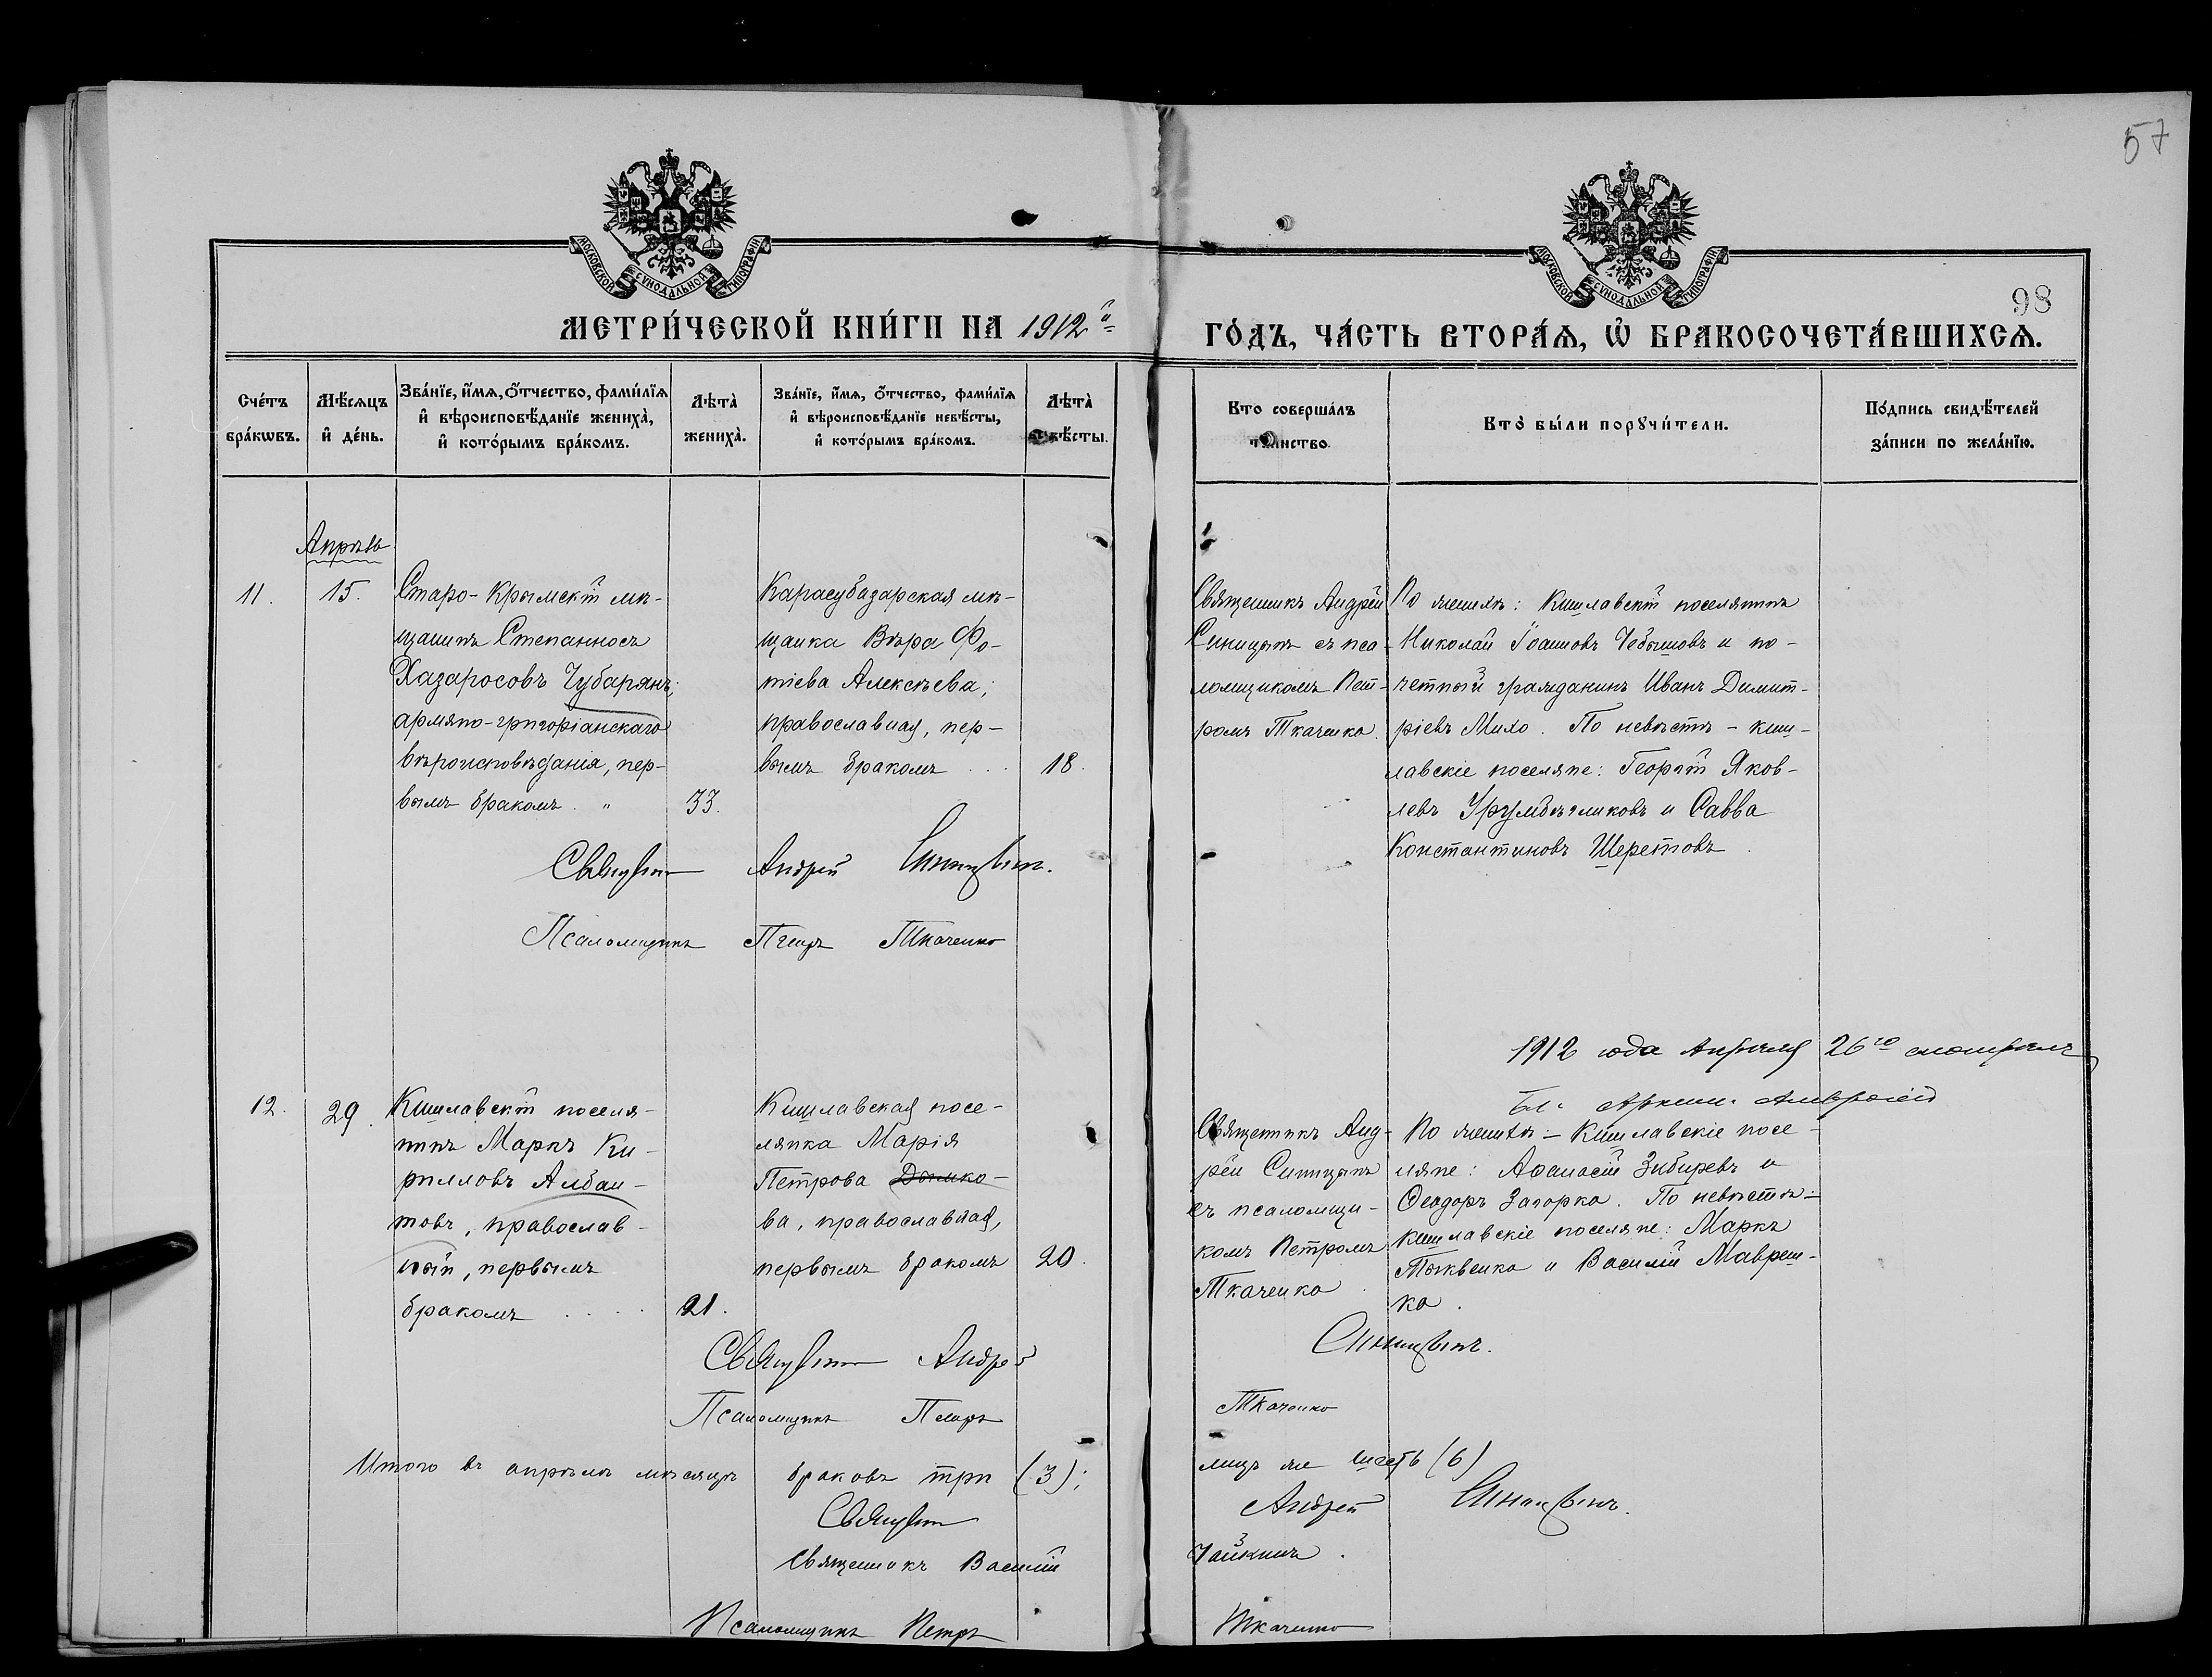 57
98
МОСКОВСКОЙ СѴНОДАЛЬНОЙ ТИПОГРАФІИ
МОСКОВСКОЙ СѴНОДАЛЬНОЙ ТИПОГРАФІИ
МЕТРИ́ЧЕСКОЙ КНИ́ГИ НА 1912й
ГО́ДЪ, ЧА́СТЬ ВТОРА́Ѧ, Ѽ БРАКОСОЧЕТА́ВШИХСѦ.
Сче́тъ бра́кѡвъ.
Мѣ́сѧцъ и҆ де́нь.
Зва́нїе, и҆́мѧ, ѻ҆́тчество, фами́лїѧ и҆ вѣроисповѣ́данїе жениха̀, и҆ кото́рымъ бра́комъ.
Лѣта̀ жениха̀.
Зва́нїе, и҆́мѧ, ѻ҆́тчество, фами́лїѧ и҆ вѣроисповѣ́данїе невѣ́сты, и҆ кото́рымъ бра́комъ.
Лѣта̀ невѣ́сты.
Кто соверша́лъ та́инство.
Кто̀ бы́ли порꙋчи́тели.
По́дпись свидѣ́телей за́писи по жела́нїю.
Апрѣль
11.
15.
Старо-Крымскій мѣ-
щанинъ Степанносъ
Хазаросовъ Чубарянъ;
армяно-григоріанскаго
вѣроисповѣданія, пер-
вымъ бракомъ "
33.
Карасубазарская мѣ-
щанка Вѣра Фо-
тіева Алексѣева;
православная, пер-
вымъ бракомъ . . .
18.
Священникъ Андрей
Синицынъ съ пса-
ломщикомъ Пет-
ромъ Ткаченко.
По женихѣ: Кишлавскій поселянинъ
Николай Іоанновъ Чебышовъ и по-
четный гражданинъ Иванъ Димит-
ріевъ Михо. По невѣстѣ - киш-
лавскіе поселяне: Георгій Яков-
левъ и Савва
Константиновъ Шеретовъ.
Священникъ Андрей Синицынъ.
Псаломщикъ Петръ Ткаченко
1912 года Апрѣля 26го смотрѣлъ
Бл. Амвросій
12.
29.
Кишлавскій поселя-
нинъ Маркъ Ки-
рилловъ Албан-
товъ, православ-
ный, первымъ
бракомъ . . . .
21.
Кишлавская посе-
лянка Марія
Петрова Дымко-
ва, православная,
первымъ бракомъ
20.
Священникъ Анд-
рей Синицынъ
съ псаломщи-
комъ Петромъ
Ткаченко.
По женихѣ: - Кишлавскіе посе-
ляне: Аѳанасій Зибиревъ и
Ѳеодоръ Загорка. По невѣстѣ -
кишлавскіе поселяне: Маркъ
Тыквенко и Василій Мавреш-
ко.
Священникъ Андрей Синицынъ.
Псаломщикъ Петръ Ткаченко
Итого въ апрѣлѣ мѣсяцѣ браковъ три (3); лицъ же шесть (6)
Священникъ Андрей Синицынъ.
Священникъ Василій Чайкинъ.
Псаломщикъ Петръ Ткаченко